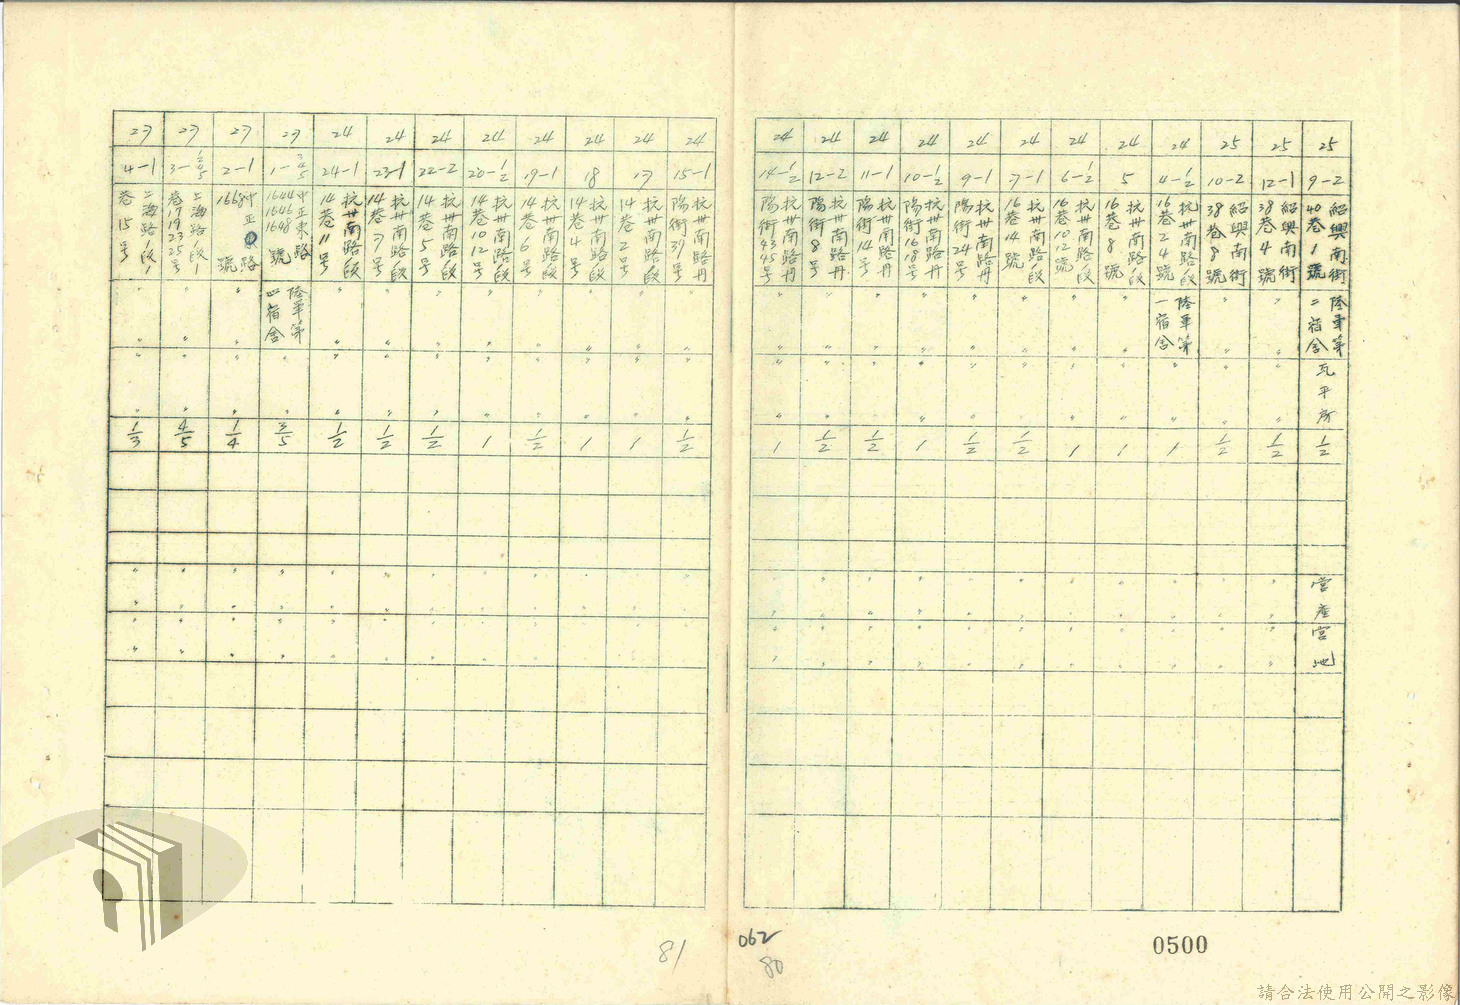 25
9-2
紹興南街
40巷1號
陸軍第
二宿舍
瓦平所
1/2
營產
官地
25
12-1
紹興南街
38巷4號
〃
〃
〃
〃
1/2
〃
〃
〃
〃
25
10-2
紹興南街
38巷8號
〃
〃
〃
〃
1/2
〃
〃
〃
〃
24
4-1/2
杭州南路一段
16巷24號
陸軍第
一宿舍
〃
〃
1
〃
〃
〃
〃
24
5
杭州南路一段
16巷8號
〃
〃
〃
〃
1
〃
〃
〃
〃
24
6-1/2
杭州南路一段
16巷10 12號
〃
〃
〃
〃
1
〃
〃
〃
〃
24
7-1
杭州南路一段
16巷14號
〃
〃
〃
〃
1/2
〃
〃
〃
〃
24
9-1
杭州南路丹
陽街24号
〃
〃
〃
〃
1/2
〃
〃
〃
〃
24
10-1/2
杭州南路丹
陽街16 18号
〃
〃
〃
〃
1
〃
〃
〃
〃
24
11-1
杭州南路丹
陽街14号
〃
〃
〃
〃
1/2
〃
〃
〃
〃
24
12-2
杭州南路丹
陽街8号
〃
〃
〃
〃
1/2
〃
〃
〃
〃
24
14-1/2
杭州南路丹
陽街43 45号
〃
〃
〃
〃
1
〃
〃
〃
〃
24
15-1
杭州南路丹
陽街37号
〃
〃
〃
〃
1/2
〃
〃
〃
〃
24
17
杭州南路一段
14巷2号
〃
〃
〃
〃
1
〃
〃
〃
〃
24
18
杭州南路一段
14巷4号
〃
〃
〃
〃
1
〃
〃
〃
〃
24
19-1
杭州南路一段
14巷6号
〃
〃
〃
〃
1/2
〃
〃
〃
〃
24
20-1/2
杭州南路一段
14巷10 12号
〃
〃
〃
〃
1
〃
〃
〃
〃
24
22-2
杭州南路一段
14巷5号
〃
〃
〃
〃
1/2
〃
〃
〃
〃
24
23-1
杭州南路一段
14巷7号
〃
〃
〃
〃
1/2
〃
〃
〃
〃
24
24-1
杭州南路一段
14巷11号
〃
〃
〃
〃
1/2
〃
〃
〃
〃
27
1-3/4/5
中正東路
1644 1646 1648號
陸軍第
四宿舍
〃
〃
3/5
〃
〃
〃
〃
27
2-1
中正路
1668號
〃
〃
〃
〃
1/4
〃
〃
〃
〃
27
上海路一段1
巷17 19 23 25号
〃
〃
〃
〃
4/5
〃
〃
〃
〃
27
4-1
上海路一段1
巷15号
〃
〃
〃
〃
1/3
〃
〃
〃
〃
81
062
80
0500
請合法使用公開之影像